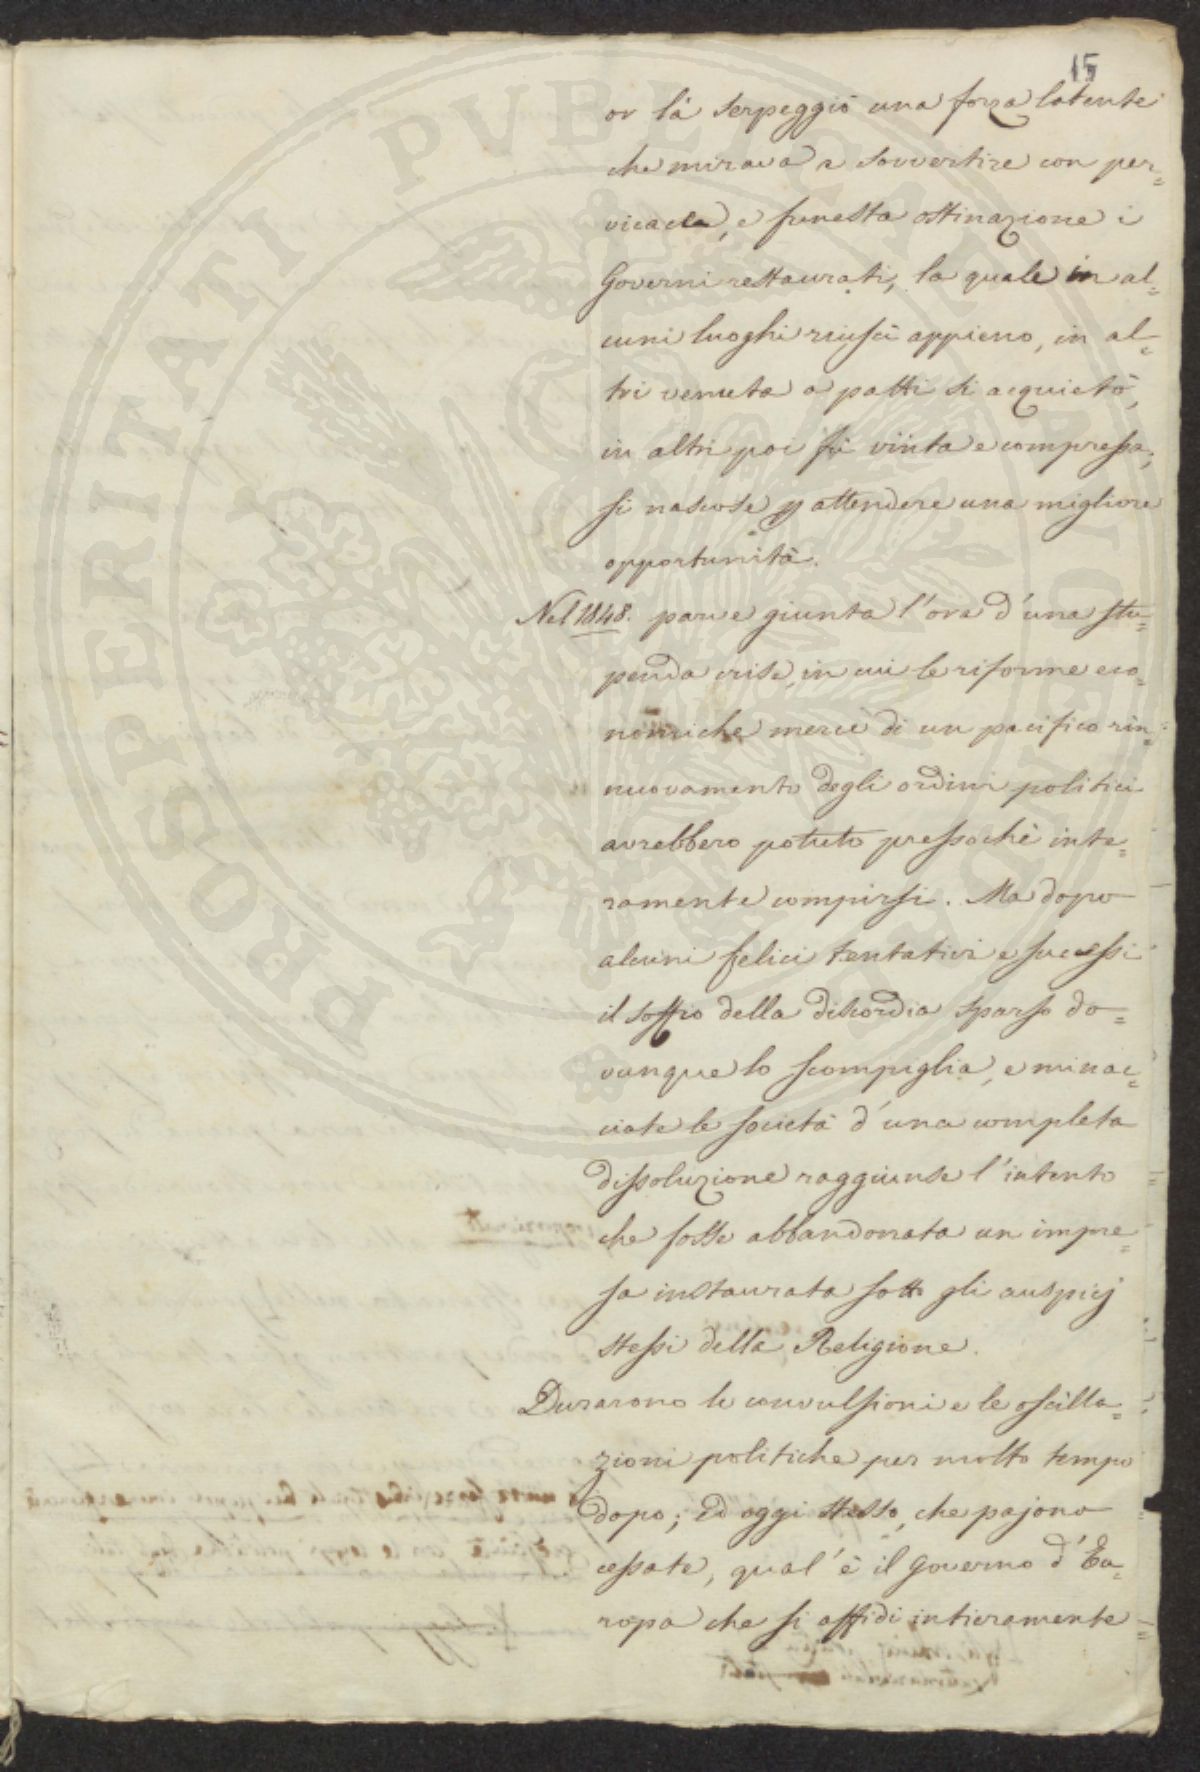 15
or là serpeggiò una forza latente
che mirava a sovvertire con per=
vicace, e funesta ostinazione i
Governi restaurati, la quale in al=
cuni luoghi riuscì appieno, in al=
tri venuta a patti si acquietò,
in altri poi fù vinta e compressa;
si nascose p attendere una migliore
opportunità.
Nel 1848. parve giunta l'ora d'una stu=
penda crise, in cui le riforme eco=
nomiche mercè di un pacifico rin=
nuovamento degli ordini politici
avrebbero potuto pressochè inte=
ramente compirsi. Ma dopo
alcuni felici tentativi e successi
il soffio della discordia sparso do=
vunque lo scompiglia, e minac=
ciate le società d'una completa
dissoluzione raggiunse l'intento
che fosse abbandonata un impre=
sa instaurata sotto gli auspicj
stessi della Religione.
Durarono le convulsioni e le oscilla=
zioni politiche per molto tempo
dopo; ed oggi stesso, che pajono
cessate, qual'è il Governo d'Eu=
ropa che si affidi intieramente
PROSPERITATI PUBLICAE